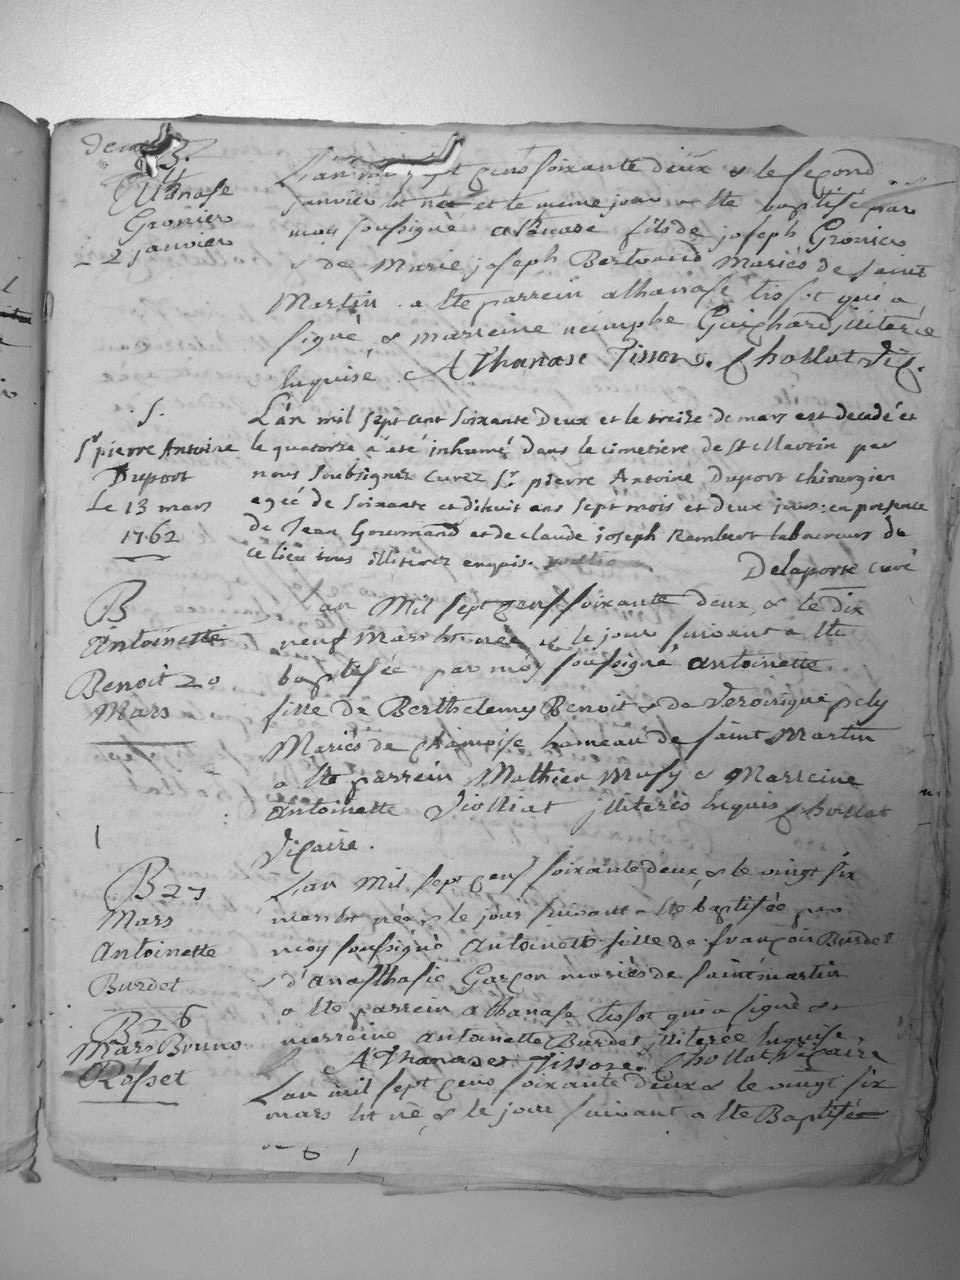 B.
Athanase
Gronier
2 janvier
L'an mil sept cens soixante deux & le second
janvier est né et le meme jour a ete baptisé par
moy soussigné athanase fils de joseph Gronier
& de Marie joseph Bertrand Mariés de saint
Martin a ete parrein athanase tissot qui a
signé & marreine nimphe Guighard illiterée
enquise Athanase Tissot. Chollat Vic.
S.
Sr pierre Antoine
Duport
Le 13 mars
1762
L'an mil sept cent soixante Deux et le treize de mars est decedé et
le quatorze a été inhumé dans le cimetiere de St Martin par
nous soubsignez curez Sr. pierre Antoine Duport chirurgien
agée de soixante et dixhuit ans sept mois et deux jours: en presence
de Jean Gourmand et de claude joseph Rambert laboureurs de
ce lieu tous illiterez enquis.
Delaporte curé
B
Antoinette
Benoit 20
Mars
L'an Mil sept cens soixante deux & le dix
neuf Mars est née & le jour suivant a ete
baptisée par moy soussigné antoinette
fille de Berthelemy Benoit & de Veronique pely
Mariés de Chamoise hameau de saint Martin
a ete parrein Mathieu Musy & Marreine
Antoinette Violliat illiterés enquis Chollat
Vicaire.
B 27
Mars
Antoinette
Burdet
L'an Mil sept cens soixante deux & le vingt six
mars est née & le jour suivant a ete baptisée par
moy soussigné Antoinette fille de françois Burdet
& d'anasthasie Garçon mariés de saint martin
a ete parrein athanase tissot qui a signé &
marreine antoinette Burdet illiterée enquise
Athanase Tissot. Chollat Vicaire
B 26
Mars Bruno
Rosset
L'an mil sept cens soixante deux & le vingt six
mars est né & le jour suivant a ete Baptisé